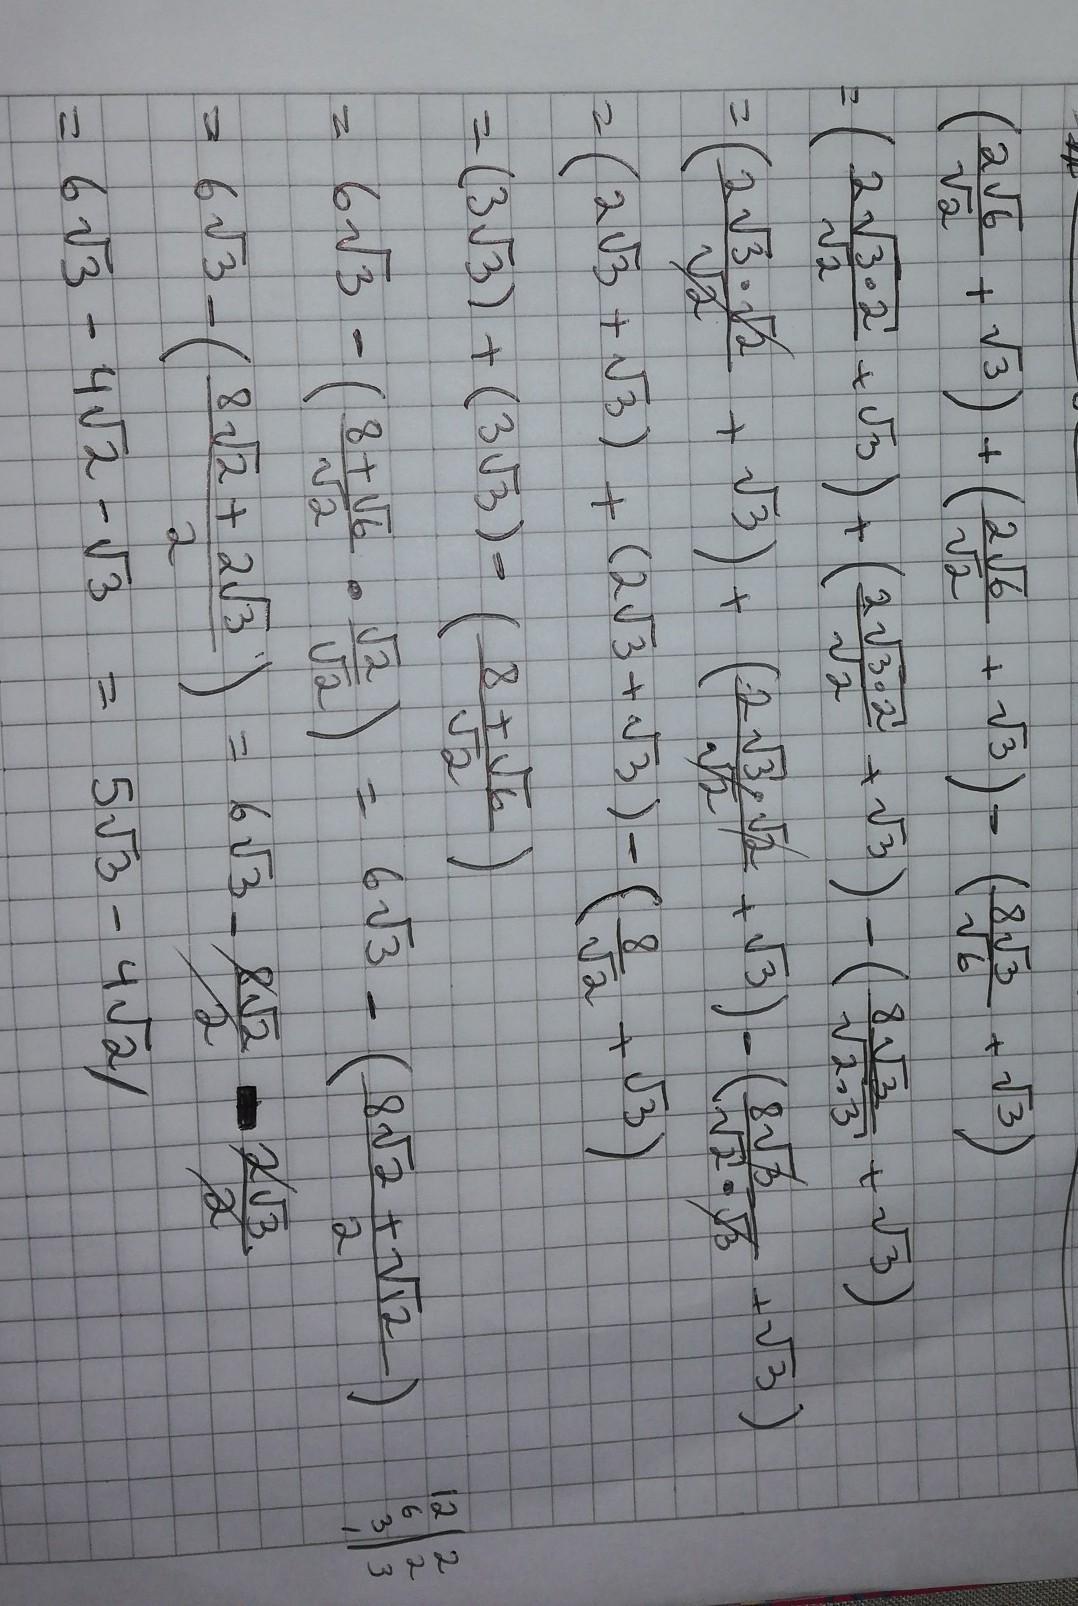 (2√6/√2 + √3) + (2√6/√2 + √3) - (8√3/√6 + √3)
= (2√3·2/√2 + √3) + (2√3·2/√2 + √3) - (8√3/√2·3 + √3)
= (2√3·√2/√2 + √3) + (2√3·√2/√2 + √3) - (8√3/√2·√3 + √3)
= (2√3 + √3) + (2√3 + √3) - (8/√2 + √3)
= (3√3) + (3√3) - (8+√6/√2)
= 6√3 - (8+√6/√2 · √2/√2) = 6√3 - (8√2+√12/2)
= 6√3 - (8√2+2√3/2) = 6√3 - 8√2/2 - 2√3/2
= 6√3 - 4√2 - √3 = 5√3 - 4√2/
12 | 2
6 | 2
3 | 3
1